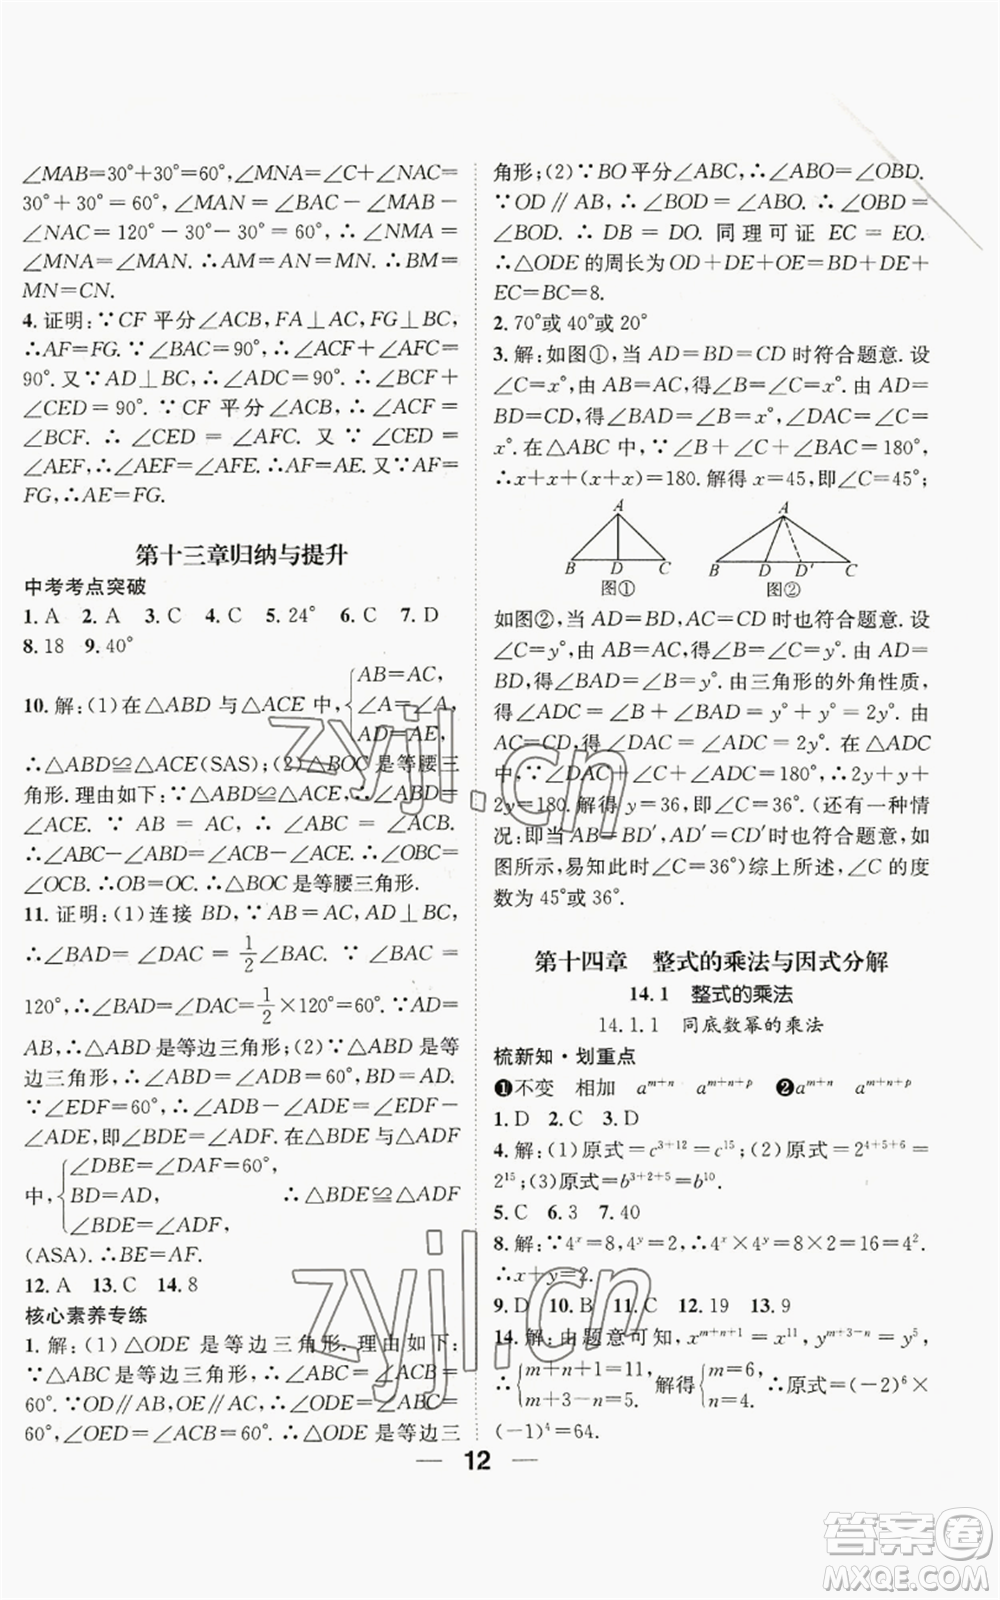 ∠MAB=30°+30°=60°,∠MNA=∠C+∠NAC=
30°+30°=60°,∠MAN=∠BAC-∠MAB-
∠NAC=120°-30°-30°=60°,∴∠MAB=
∠MNA=∠MAN.∴AM=AN=MN.∴BM=
MN=CN.
4.证明:∵CF平分∠ACB,FA⊥AC,FG⊥BC,
∴AF=FG.∵∠BAC=90°,∴∠ACF+∠AFC=
90°.又∵AD⊥BC,∴∠ADC=90°.∴∠BCF+
∠CED=90°.∵CF平分∠ACB,∴∠ACF=
∠BCF.∴∠CED=∠AFC.又∵∠CED=
∠AEF,∴∠AEF=∠AFE.∴AF=AE.又∵AF=
FG,∴AE=FG.
第十三章归纳与提升
中考考点突破
1.A 2.A 3.C 4.C 5.24° 6.C 7.D
8.18 9.40°
10.解:(1)在△ABD与△ACE中,{AB=AC,
∠A=∠A,
AD=AE,
∴△ABD≌△ACE(SAS);(2)△BOC是等腰三
角形.理由如下:∵△ABD≌△ACE,∴∠ABD=
∠ACE.∵AB=AC,∴∠ABC=∠ACB.
∴∠ABC-∠ABD=∠ACB-∠ACE.∴∠OBC=
∠OCB.∴OB=OC.∴△BOC是等腰三角形.
11.证明:(1)连接BD,∵AB=AC,AD⊥BC,
∴∠BAD=∠DAC=1/2∠BAC.∵∠BAC=
120°,∴∠BAD=∠DAC=1/2×120°=60°.∵AD=
AB,∴△ABD是等边三角形;(2)∵△ABD是等
边三角形,∴∠ABD=∠ADB=60°,BD=AD.
∵∠EDF=60°,∴∠ADB-∠ADE=∠EDF-
∠ADE,即∠BDE=∠ADF.在△BDE与△ADF
中,{∠DBE=∠DAF=60°,
BD=AD, ∴△BDE≌△ADF
∠BDE=∠ADF,
(ASA).∴BE=AF.
12.A 13.C 14.8
核心素养专练
1.解:(1)△ODE是等边三角形.理由如下:
∵△ABC是等边三角形,∴∠ABC=∠ACB=
60°.∵OD∥AB,OE∥AC,∴∠ODE=∠ABC=
60°,∠OED=∠ACB=60°.∴△ODE是等边三
角形;(2)∵BO平分∠ABC,∴∠ABO=∠OBD.
∵OD∥AB,∴∠BOD=∠ABO.∴∠OBD=
∠BOD.∴DB=DO.同理可证EC=EO.
∴△ODE的周长为OD+DE+OE=BD+DE+
EC=BC=8.
2.70°或40°或20°
3.解:如图①,当AD=BD=CD时符合题意.设
∠C=x°,由AB=AC,得∠B=∠C=x°.由AD=
BD=CD,得∠BAD=∠B=x°,∠DAC=∠C=
x°.在△ABC中,∵∠B+∠C+∠BAC=180°,
∴x+x+(x+x)=180.解得x=45,即∠C=45°;
A A
B D C B D D′ C
图① 图②
如图②,当AD=BD,AC=CD时也符合题意.设
∠C=y°,由AB=AC,得∠B=∠C=y°.由AD=
BD,得∠BAD=∠B=y°.由三角形的外角性质,
得∠ADC=∠B+∠BAD=y°+y°=2y°.由
AC=CD,得∠DAC=∠ADC=2y°.在△ADC
中,∵∠DAC+∠ADC+∠C=180°,∴2y+y+
2y=180.解得y=36,即∠C=36°.(还有一种情
况:即当AB=BD′,AD′=CD′时也符合题意,如
图所示,易知此时∠C=36°)综上所述,∠C的度
数为45°或36°.
第十四章 整式的乘法与因式分解
14.1 整式的乘法
14.1.1 同底数幂的乘法
梳新知·划重点
❶不变 相加 aᵐ⁺ⁿ aᵐ⁺ⁿ⁺ᵖ ❷aᵐ⁺ⁿ aᵐ⁺ⁿ⁺ᵖ
1.D 2.C 3.D
4.解:(1)原式=c³⁺¹²=c¹⁵;(2)原式=2⁴⁺⁵⁺⁶=
2¹⁵;(3)原式=b³⁺²⁺⁵=b¹⁰.
5.C 6.3 7.40
8.解:∵4ˣ=8,4ʸ=2,∴4ˣ×4ʸ=8×2=16=4².
∴x+y=2.
9.D 10.B 11.C 12.19 13.9
14.解:由题意可知,xᵐ⁺ⁿ⁺¹=x¹¹,yᵐ⁺³⁻ⁿ=y⁵,
∴{m+n+1=11, 解得{m=6, ∴原式=(-2)⁶×
m+3-n=5. n=4.
(-1)⁴=64.
12
zyjl.cn
zyjl.cn
答案圈
MXQE.COM